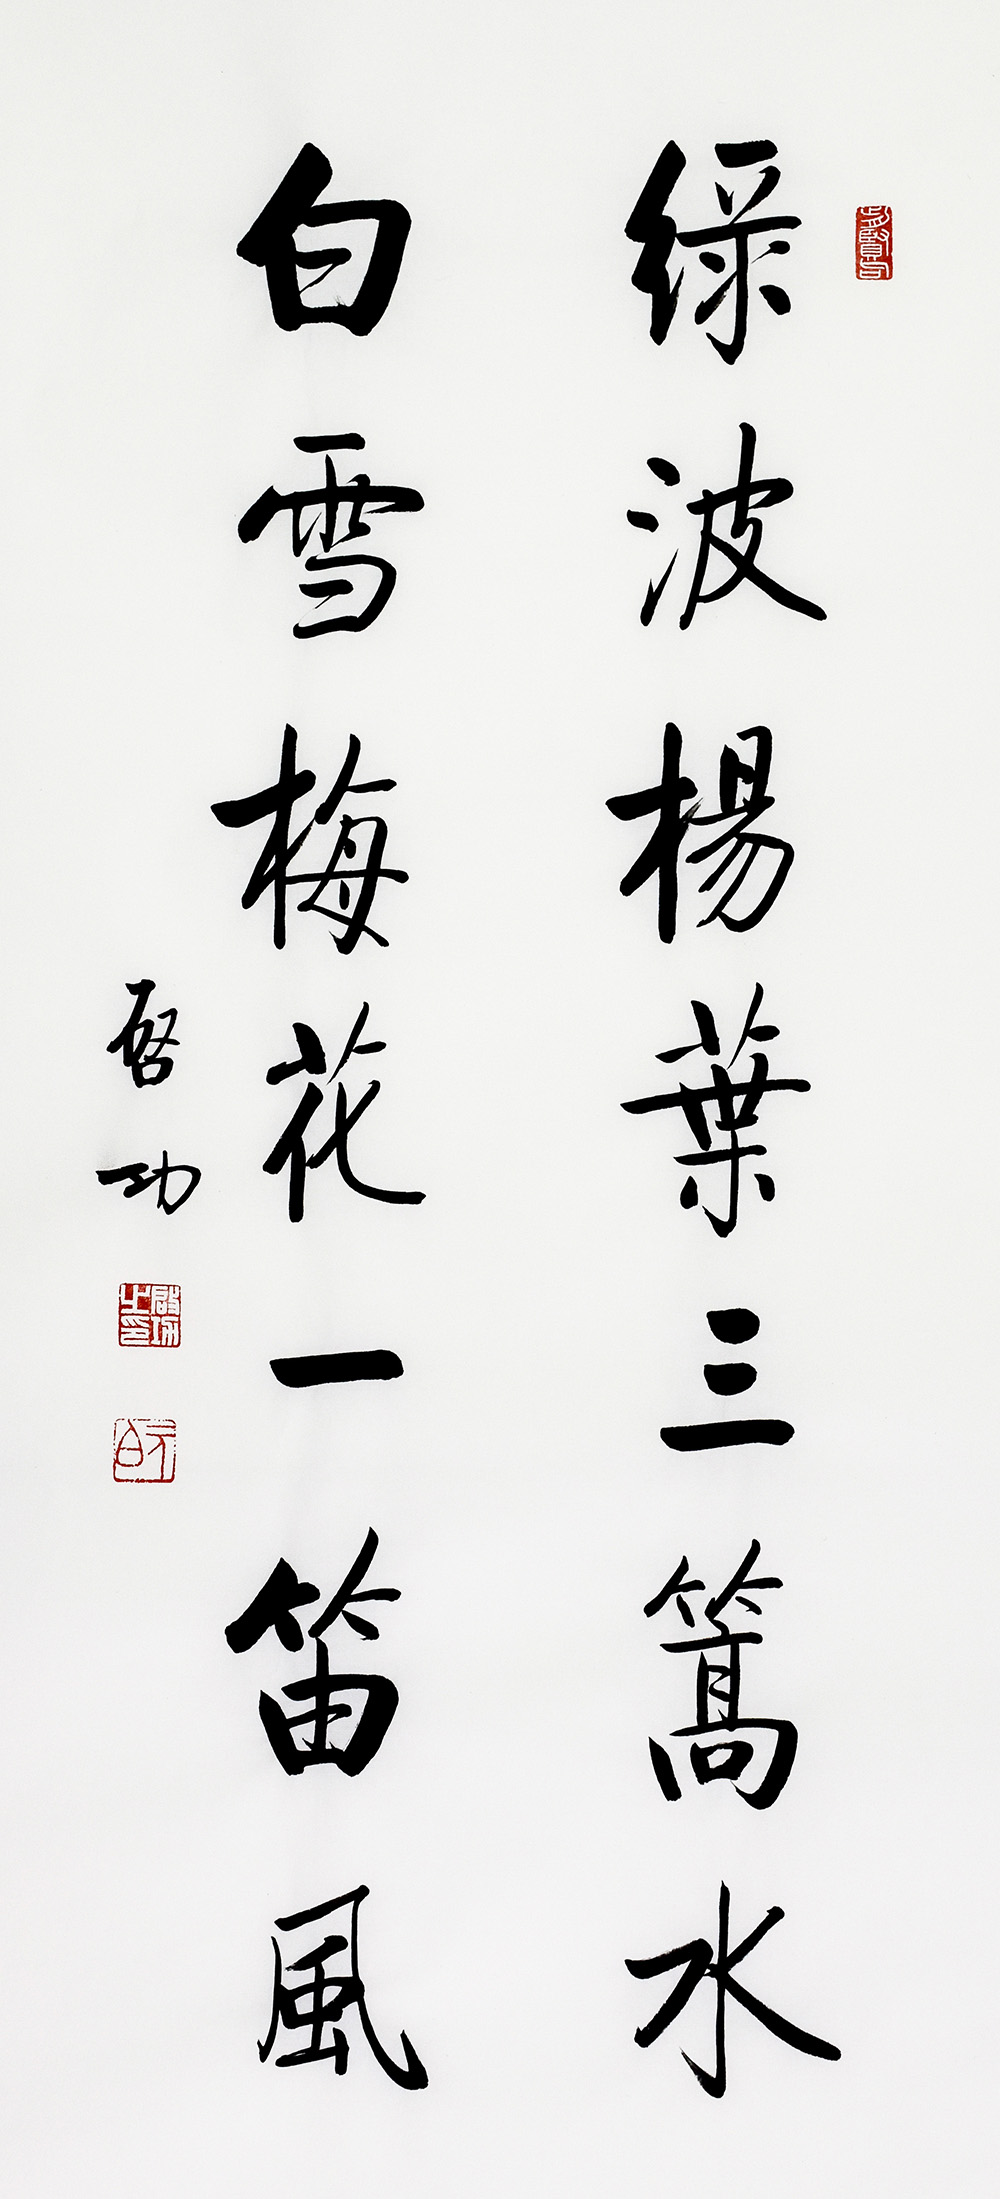 綠波楊葉三篙水
白雪梅花一笛風
啓功
啓功之印
元白